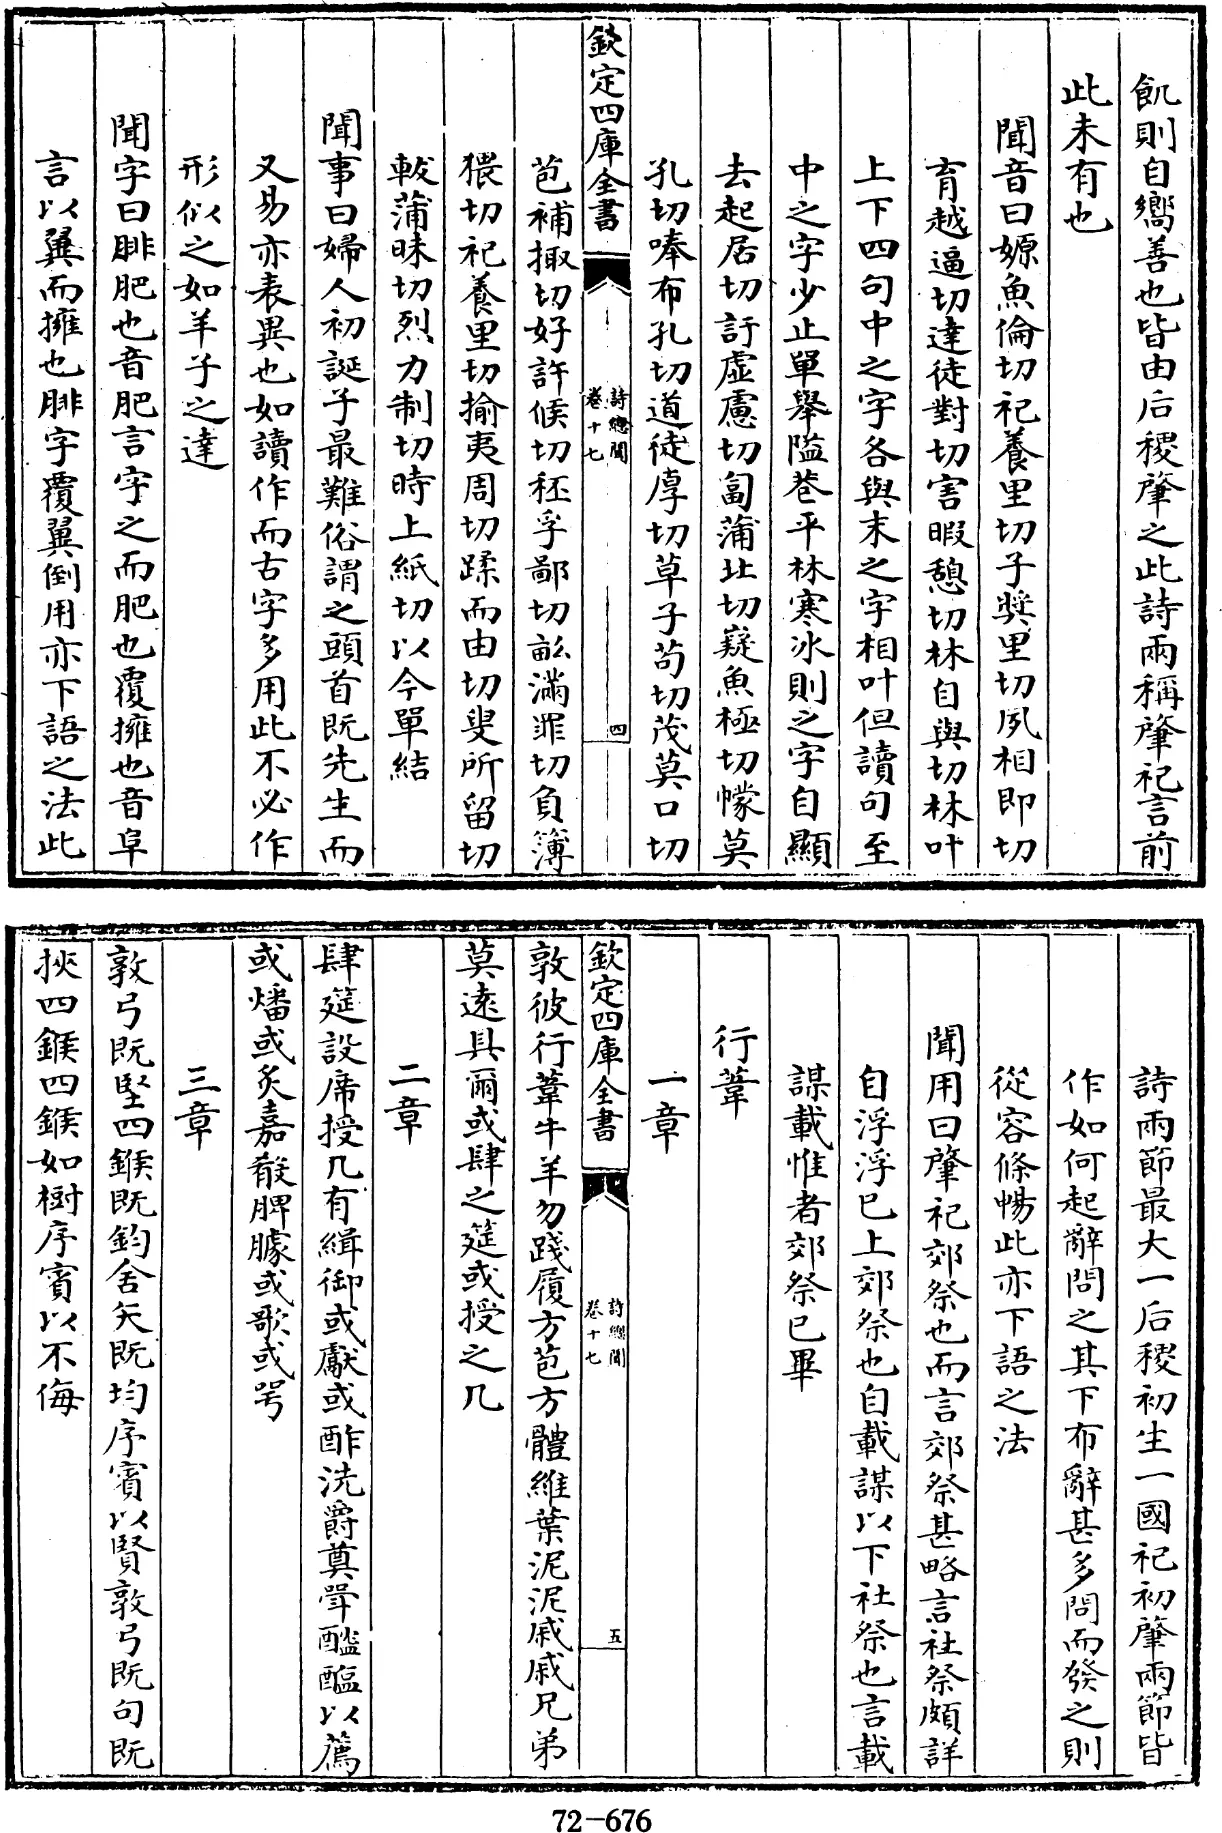 飢則自嚮善也皆由后稷肇之此詩兩稱肇祀言前
此未有也
聞音曰嫄魚倫切祀養里切子奬里切夙相即切
育越逼切達徒對切害暇憩切林自與切林叶
上下四句中之字各與末之字相叶但讀句至
中之字少止單舉隘巷平林寒冰則之字自顯
去起居切訏虛慮切匐蒲北切嶷魚極切幪莫
孔切唪布孔切道徒厚切草子茍切茂莫口切
欽定四庫全書
詩總聞
卷十七
四
苞補掫切好許候切秠孚鄙切畝滿罪切負簿
猥切祀養里切揄夷周切蹂而由切叟所留切
軷蒲昧切烈力制切時上紙切以今單結
聞事曰婦人初誕子最難俗謂之頭首既先生而
又易亦表異也如讀作而古字多用此不必作
形似之如羊子之達
聞字曰腓肥也音肥言字之而肥也覆擁也音阜
言以翼而擁也腓字覆翼倒用亦下語之法此
詩兩節最大一后稷初生一國祀初肇兩節皆
作如何起辭問之其下布辭甚多問而發之則
從容條暢此亦下語之法
聞用曰肇祀郊祭也而言郊祭甚略言社祭頗詳
自浮浮已上郊祭也自載謀以下社祭也言載
謀載惟者郊祭已畢
行葦
一章
欽定四庫全書
詩總聞
卷十七
五
敦彼行葦牛羊勿踐履方苞方體維葉泥泥戚戚兄弟
莫遠具爾或肆之筵或授之几
二章
肆筵設席授几有緝御或獻或酢洗爵奠斝醓醢以薦
或燔或炙嘉殽脾臄或歌或咢
三章
敦弓既堅四鍭既鈞舍矢既均序賓以賢敦弓既句既
挾四鍭四鍭如樹序賓以不侮
72-676